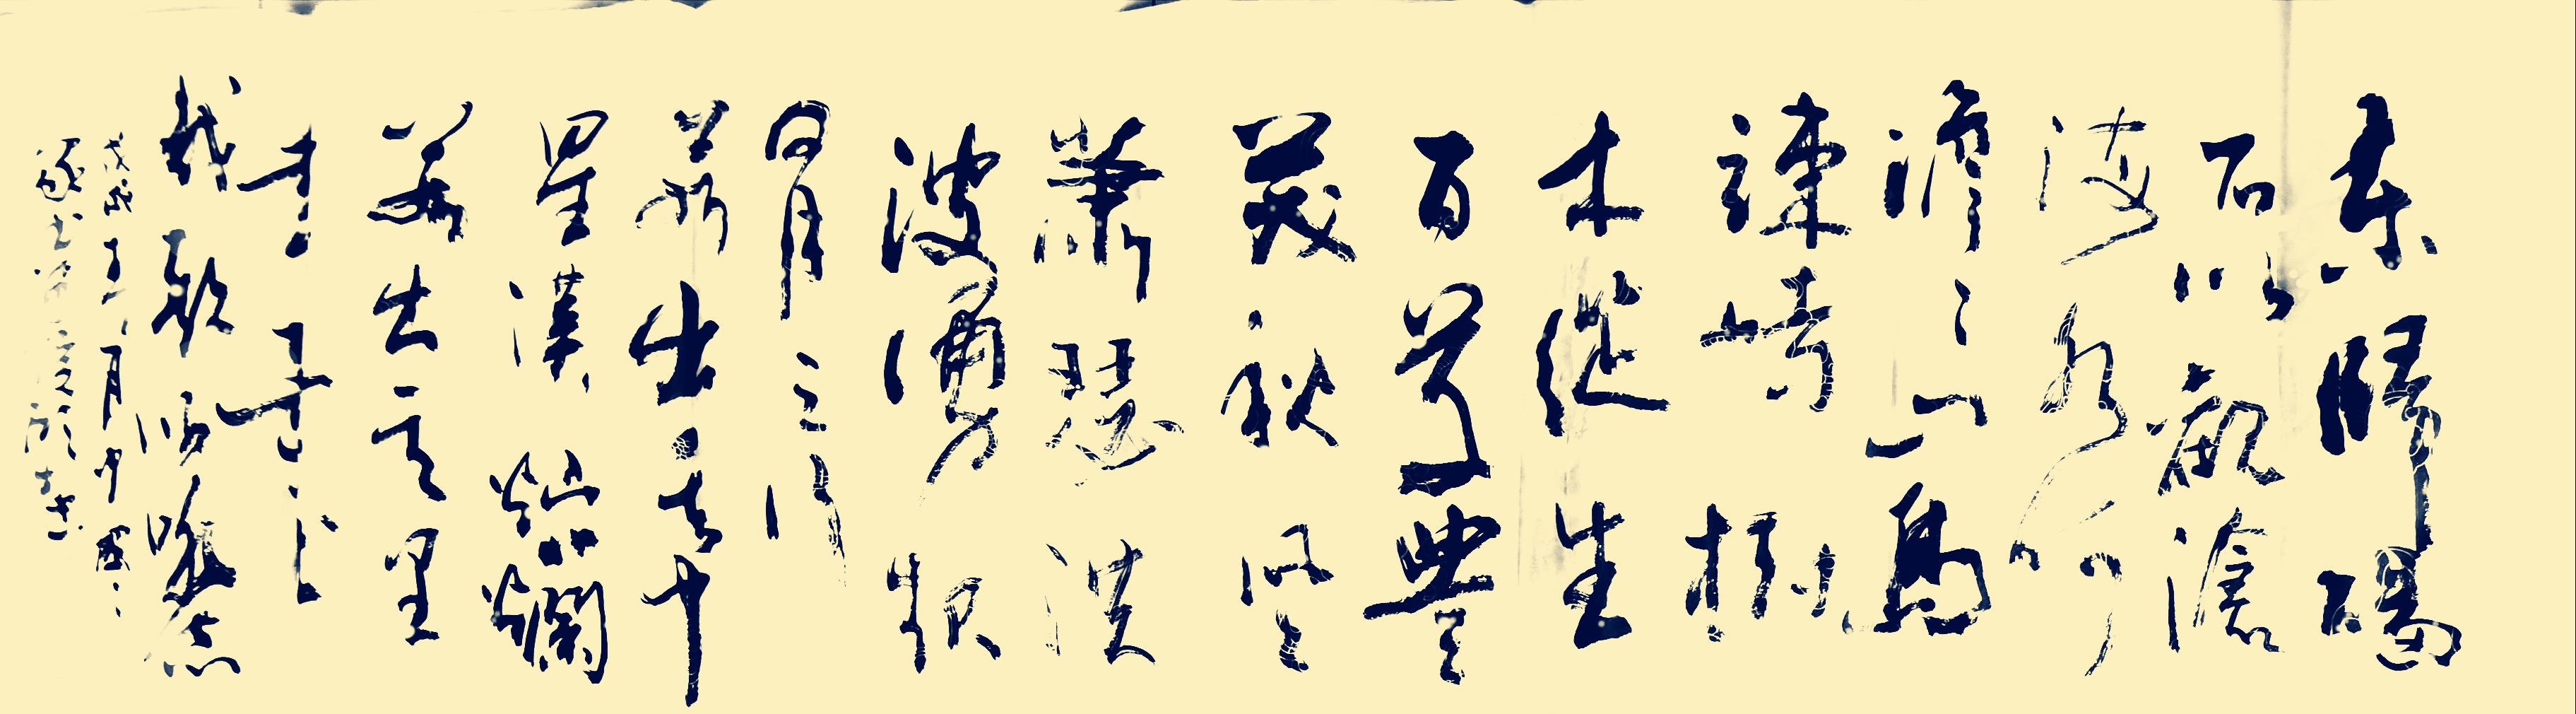 東臨碣
石以觀滄
海水何
澹澹山島
竦峙樹
木從生
百草豐
茂秋風
蕭瑟洪
波湧起
日月之行
若出其中
星漢燦爛
若出其里
幸甚至
哉歌以詠志
戊戌 月中